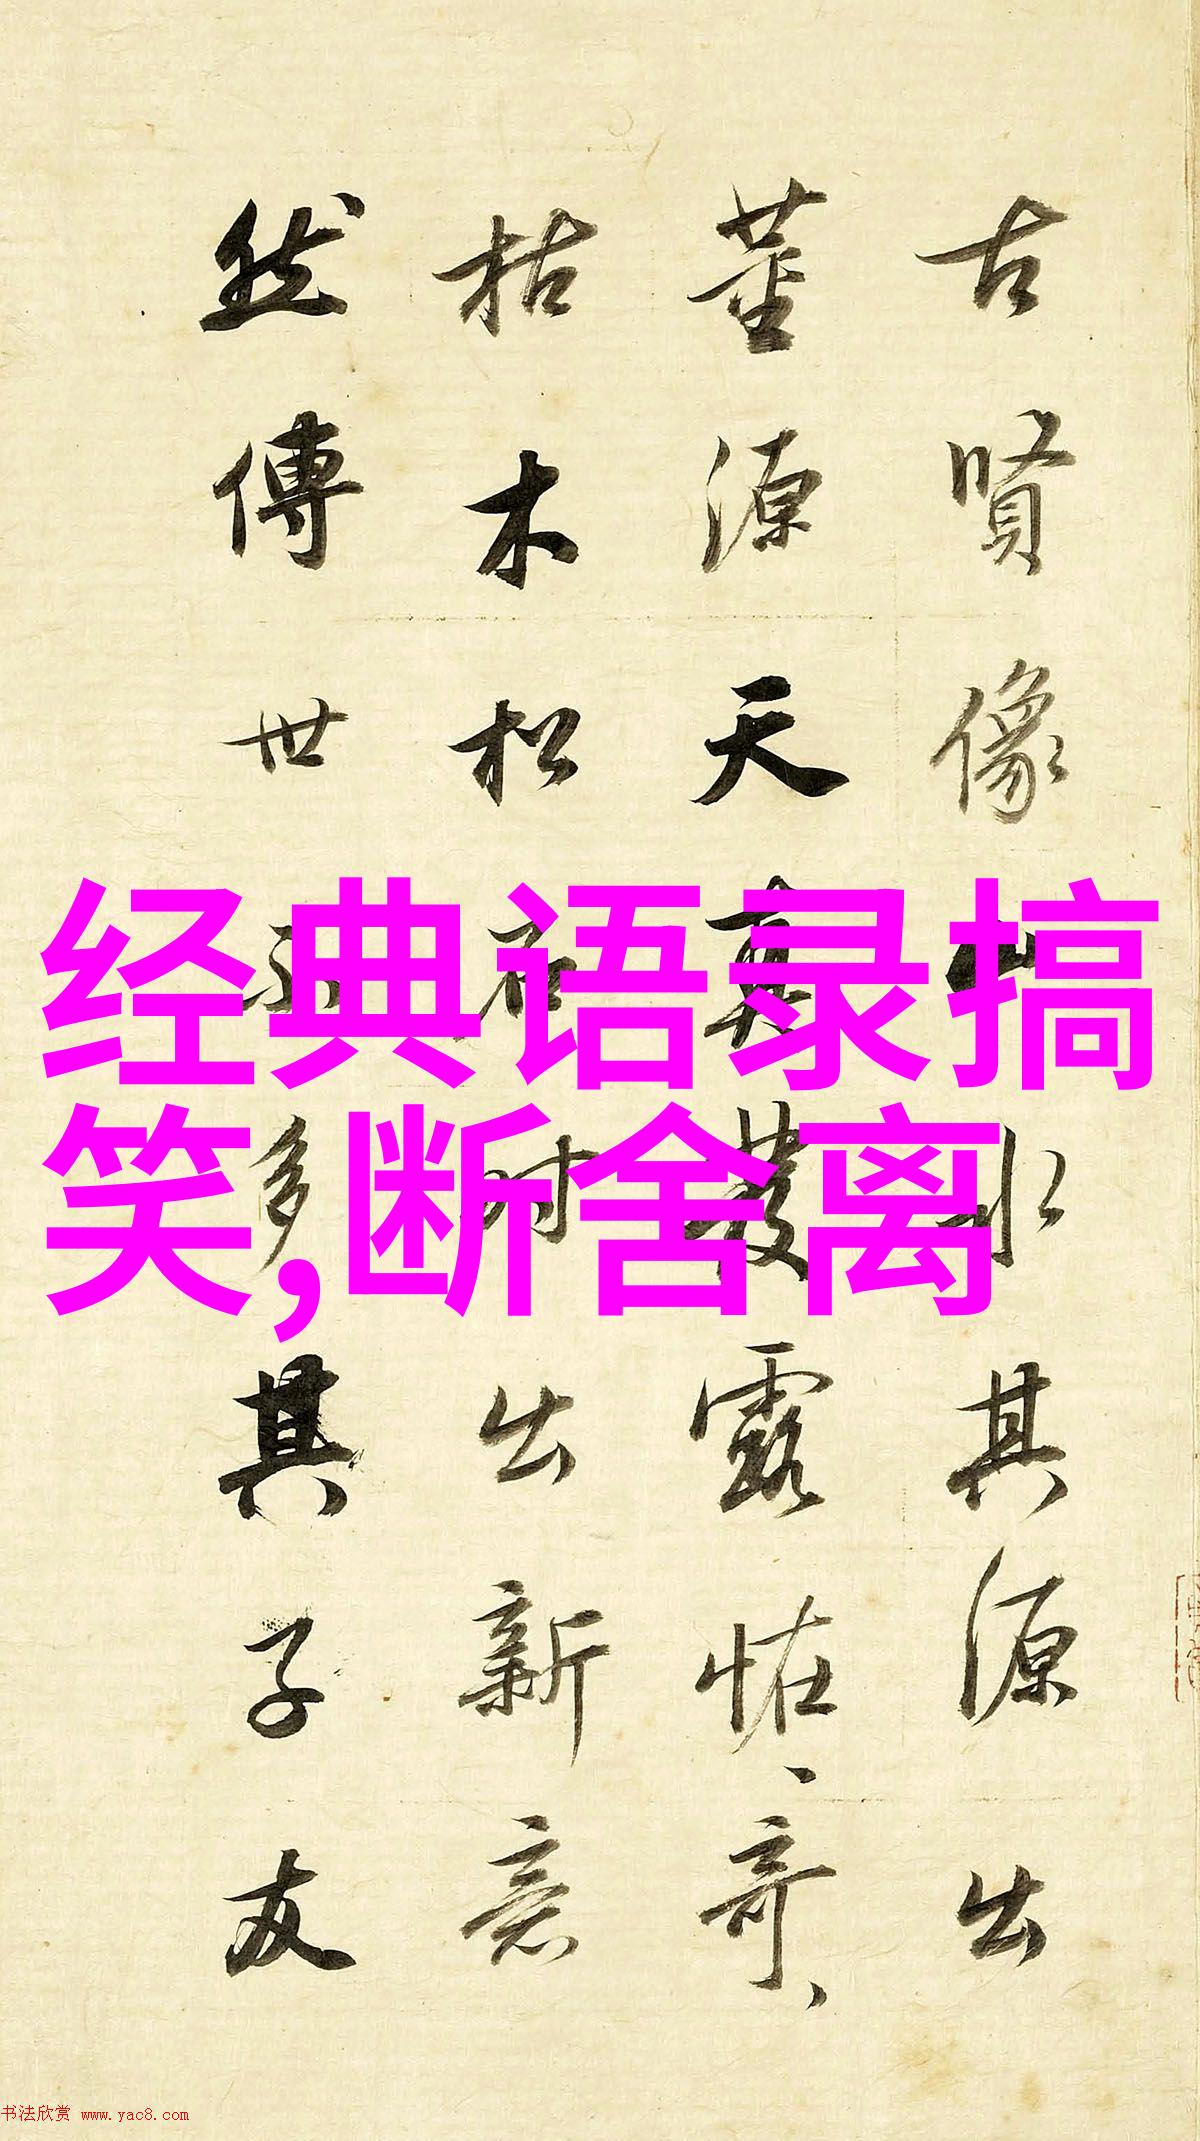 古賢像山水其源出
董源天真發露怪奇
枯木松石时出新意
然傳世不多其子友
经典语录搞
笑,断舍离
书法欣赏 www.yac8.com